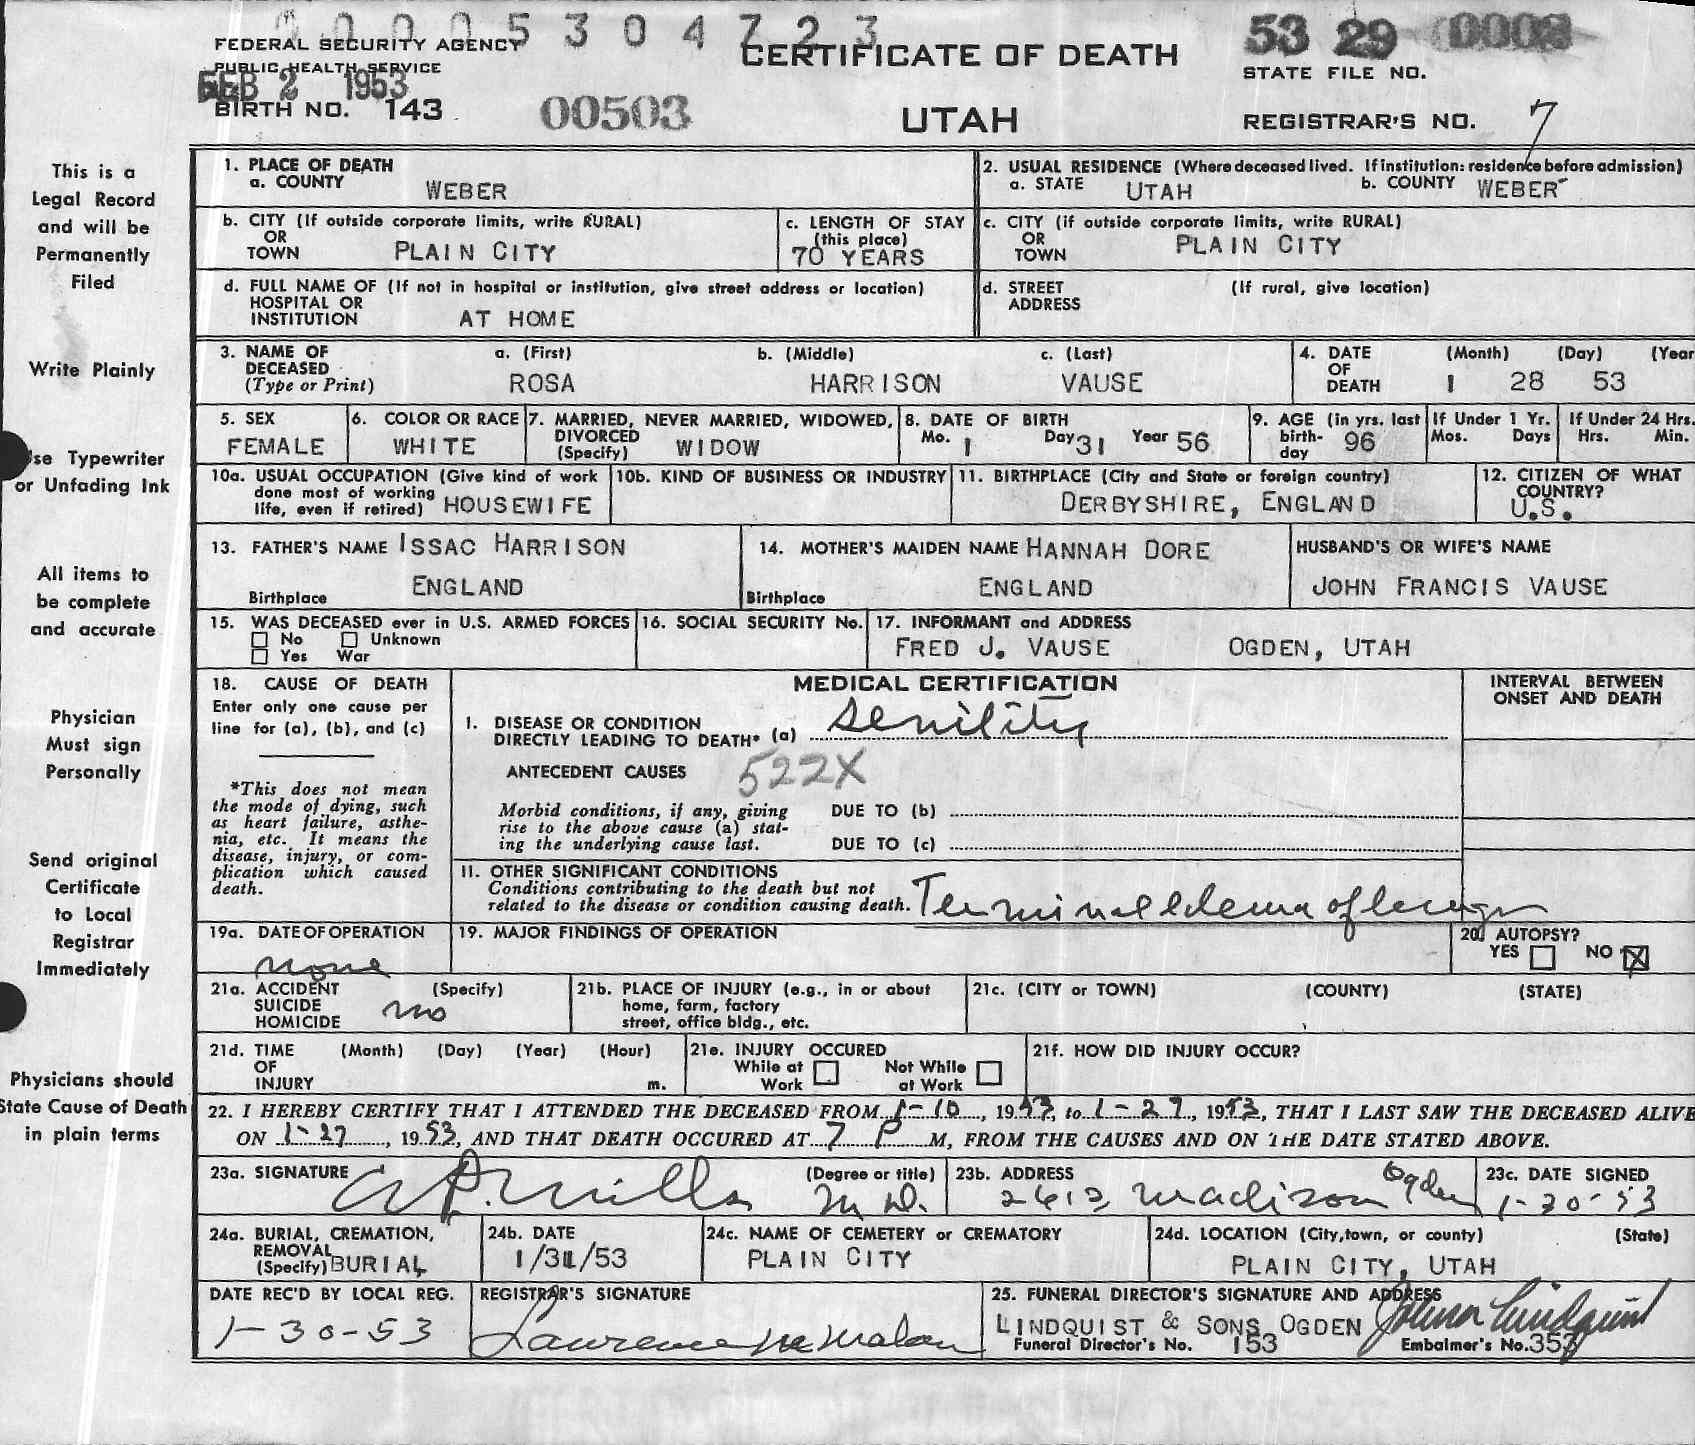 00005304723
53 29 0008
FEDERAL SECURITY AGENCY
PUBLIC HEALTH SERVICE
CERTIFICATE OF DEATH
STATE FILE NO.
FEB 2 1953
BIRTH NO. 143
00503
UTAH
REGISTRAR'S NO. 7
This is a
Legal Record
and will be
Permanently
Filed
Write Plainly
Use Typewriter
or Unfading Ink
All items to
be complete
and accurate
Physician
Must sign
Personally
Send original
Certificate
to Local
Registrar
Immediately
Physicians should
State Cause of Death
in plain terms
1. PLACE OF DEATH
a. COUNTY WEBER
2. USUAL RESIDENCE (Where deceased lived. If institution: residence before admission)
a. STATE UTAH b. COUNTY WEBER
b. CITY (If outside corporate limits, write RURAL)
OR
TOWN PLAIN CITY
c. LENGTH OF STAY
(this place)
70 YEARS
c. CITY (if outside corporate limits, write RURAL)
OR
TOWN PLAIN CITY
d. FULL NAME OF (If not in hospital or institution, give street address or location)
HOSPITAL OR
INSTITUTION AT HOME
d. STREET (If rural, give location)
ADDRESS
3. NAME OF DECEASED (Type or Print)
a. (First) b. (Middle) c. (Last)
ROSA HARRISON VAUSE
4. DATE OF DEATH (Month) (Day) (Year
1 28 53
5. SEX
FEMALE
6. COLOR OR RACE
WHITE
7. MARRIED, NEVER MARRIED, WIDOWED,
DIVORCED
(Specify) WIDOW
8. DATE OF BIRTH
Mo. 1 Day 31 Year 56
9. AGE (in yrs. last
birth-
day 96
If Under 1 Yr.
Mos. Days
If Under 24 Hrs.
Hrs. Min.
10a. USUAL OCCUPATION (Give kind of work
done most of working
life, even if retired) HOUSEWIFE
10b. KIND OF BUSINESS OR INDUSTRY
11. BIRTHPLACE (City and State or foreign country)
DERBYSHIRE, ENGLAND
12. CITIZEN OF WHAT
COUNTRY?
U.S.
13. FATHER'S NAME ISSAC HARRISON
Birthplace ENGLAND
14. MOTHER'S MAIDEN NAME HANNAH DORE
Birthplace ENGLAND
HUSBAND'S OR WIFE'S NAME
JOHN FRANCIS VAUSE
15. WAS DECEASED ever in U.S. ARMED FORCES
No Unknown
Yes War
16. SOCIAL SECURITY No.
17. INFORMANT and ADDRESS
FRED J. VAUSE OGDEN, UTAH
18. CAUSE OF DEATH
Enter only one cause per
line for (a), (b), and (c)
*This does not mean
the mode of dying, such
as heart failure, asthe-
nia, etc. It means the
disease, injury, or com-
plication which caused
death.
MEDICAL CERTIFICATION
INTERVAL BETWEEN
ONSET AND DEATH
I. DISEASE OR CONDITION
DIRECTLY LEADING TO DEATH* (a) Senility
ANTECEDENT CAUSES 522X
Morbid conditions, if any, giving
rise to the above cause (a) stat-
ing the underlying cause last.
DUE TO (b)
DUE TO (c)
II. OTHER SIGNIFICANT CONDITIONS
Conditions contributing to the death but not
related to the disease or condition causing death. Terminal edema of lungs
19a. DATE OF OPERATION
none
19. MAJOR FINDINGS OF OPERATION
20. AUTOPSY?
YES NO X
21a. ACCIDENT (Specify)
SUICIDE
HOMICIDE no
21b. PLACE OF INJURY (e.g., in or about
home, farm, factory
street, office bldg., etc.
21c. (CITY or TOWN) (COUNTY) (STATE)
21d. TIME (Month) (Day) (Year) (Hour)
OF
INJURY m.
21e. INJURY OCCURED
While at Work Not While at Work
21f. HOW DID INJURY OCCUR?
22. I HEREBY CERTIFY THAT I ATTENDED THE DECEASED FROM 1-10, 1953, to 1-27, 1953, THAT I LAST SAW THE DECEASED ALIVE
ON 1-27, 1953, AND THAT DEATH OCCURED AT 7 P M, FROM THE CAUSES AND ON THE DATE STATED ABOVE.
23a. SIGNATURE (Degree or title)
Mills M.D.
23b. ADDRESS
2612 Madison Ogden
23c. DATE SIGNED
1-30-53
24a. BURIAL, CREMATION,
REMOVAL
(Specify) BURIAL
24b. DATE
1/31/53
24c. NAME OF CEMETERY or CREMATORY
PLAIN CITY
24d. LOCATION (City, town, or county) (State)
PLAIN CITY, UTAH
DATE REC'D BY LOCAL REG.
1-30-53
REGISTRAR'S SIGNATURE
Lawrence M Malan
25. FUNERAL DIRECTOR'S SIGNATURE AND ADDRESS
LINDQUIST & SONS OGDEN Lindquist
Funeral Director's No. 153 Embalmer's No. 353